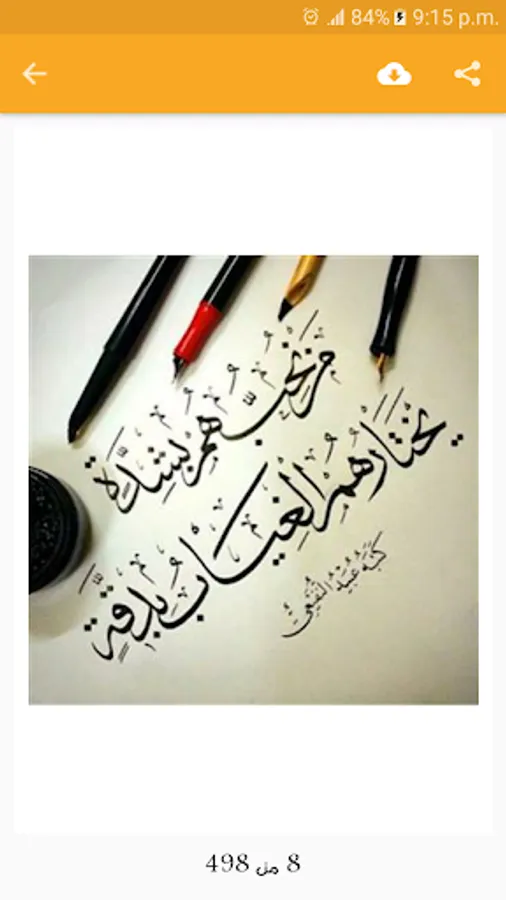 84% 9:15 p.m.
من نحبّهم بشدّة
يختارهم الغياب بدقّة
كتبه عبيد النفيعي
8 من 498